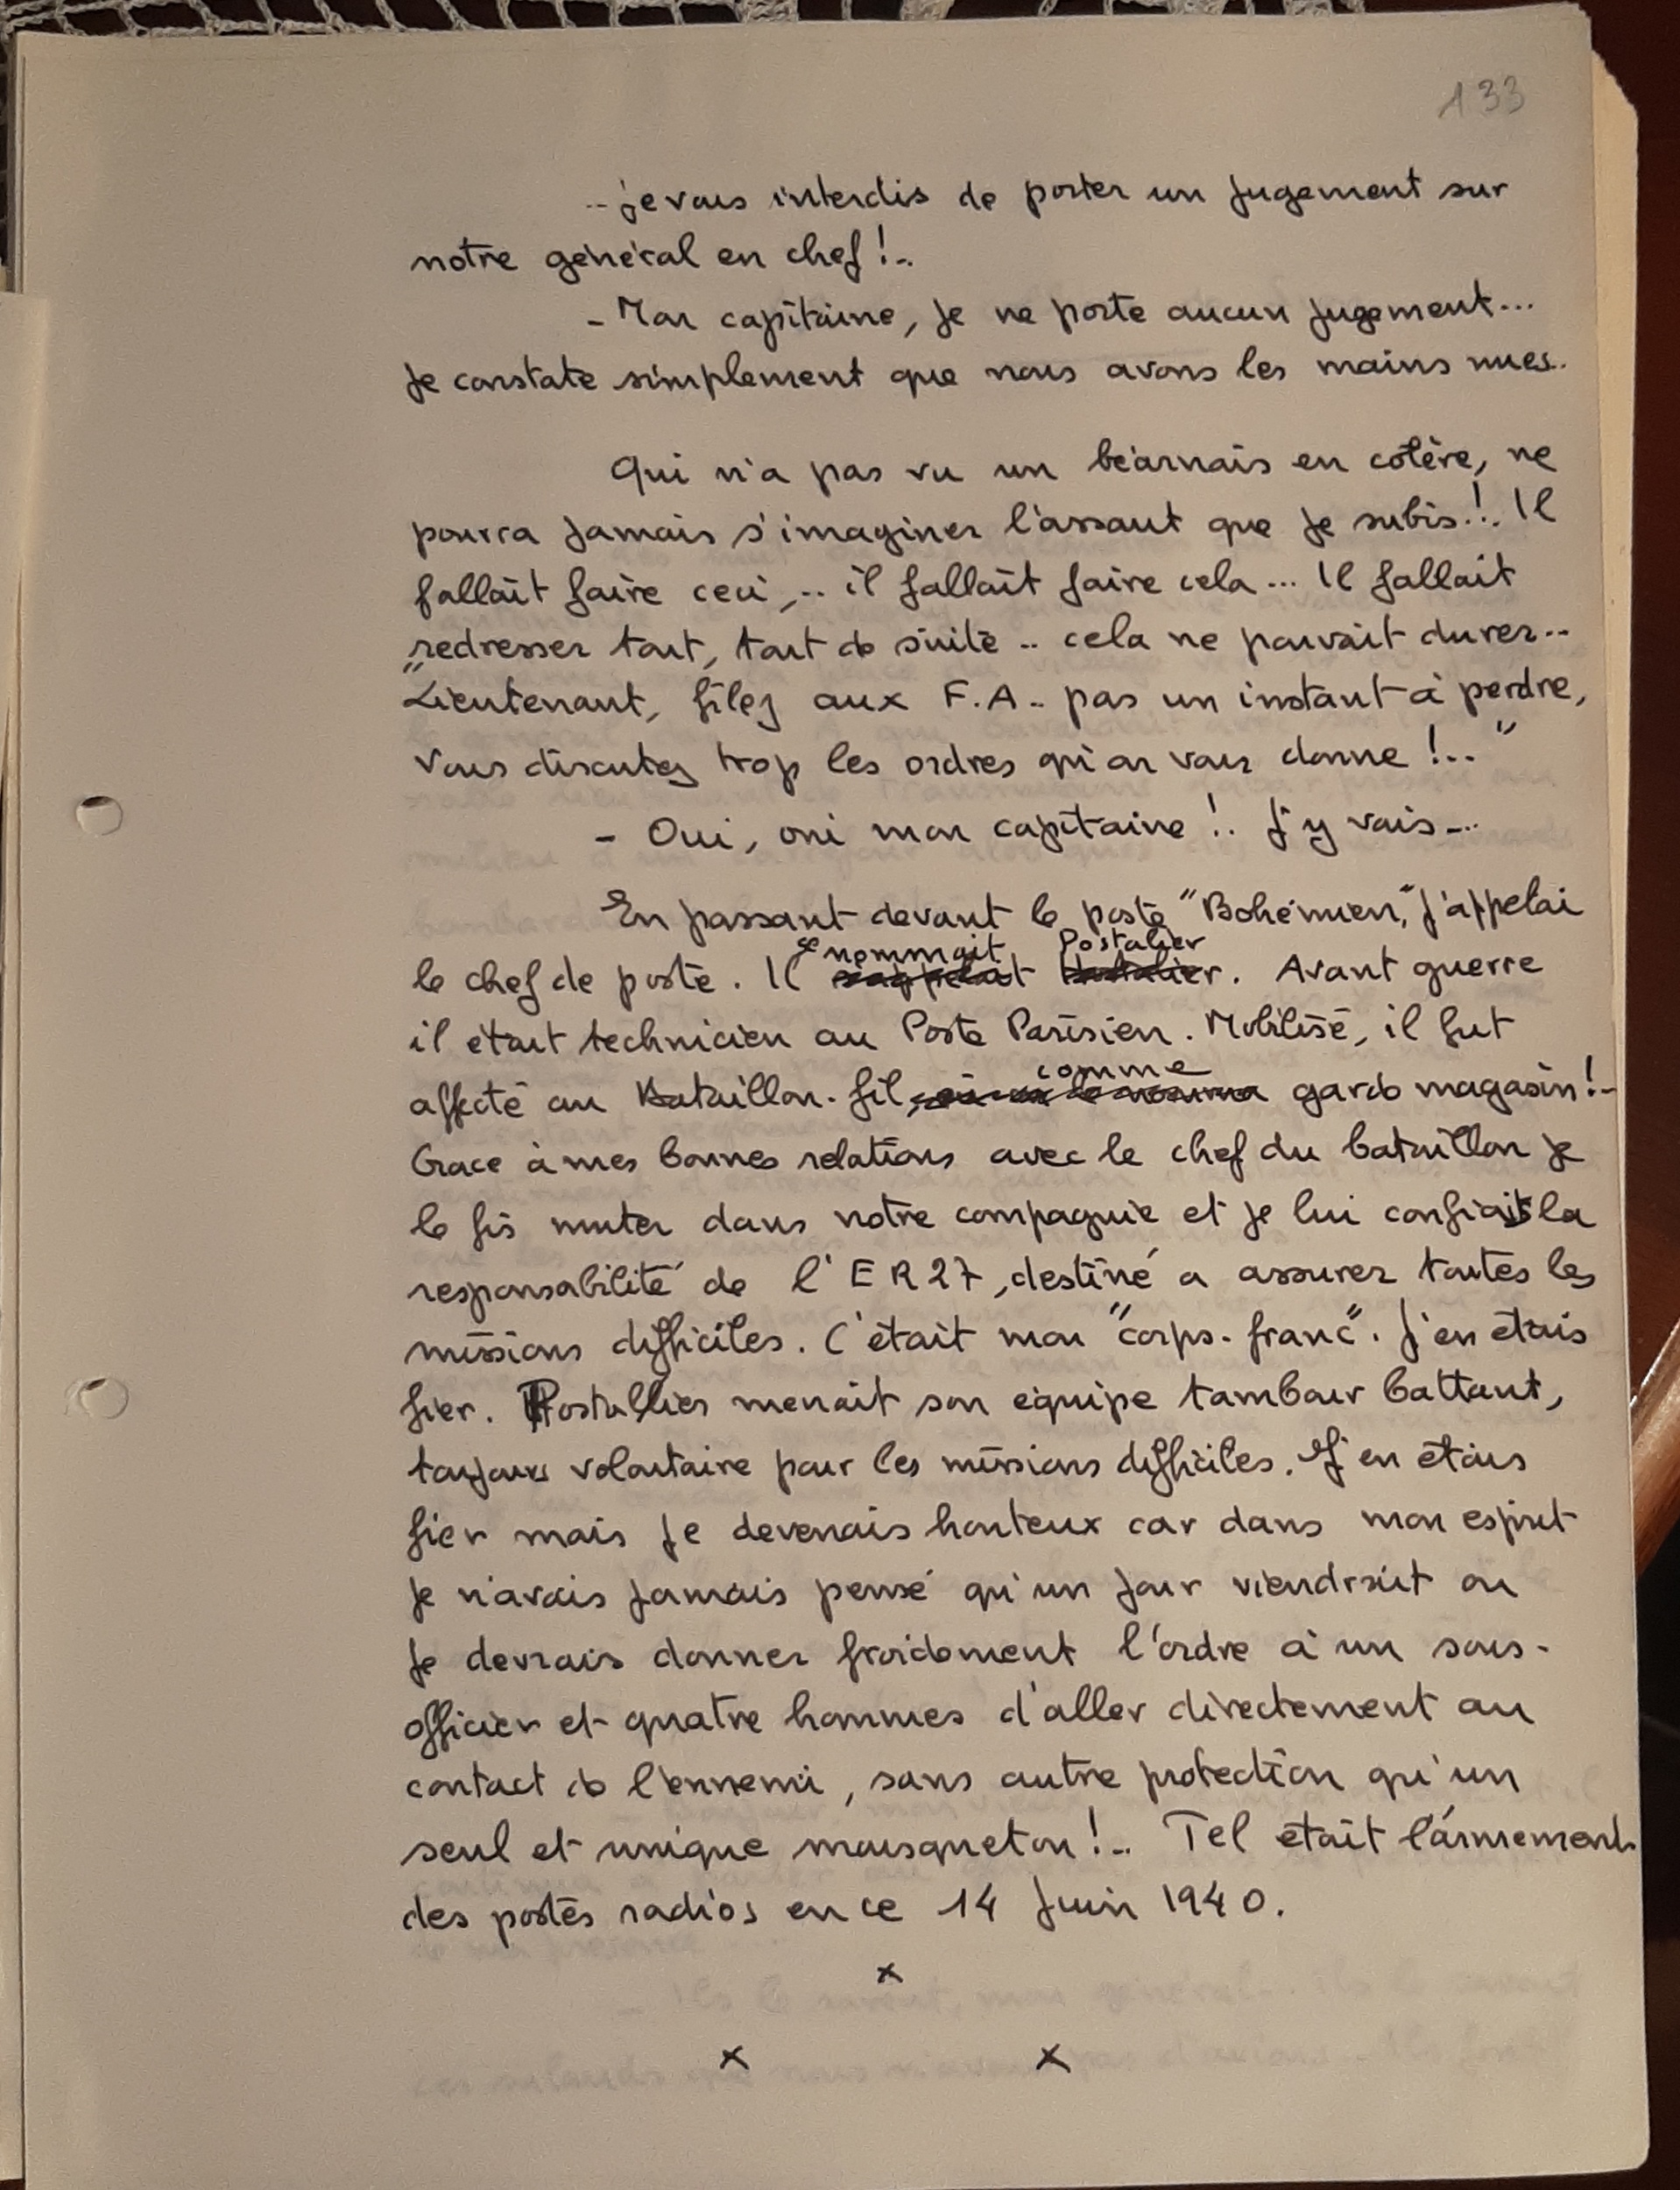 133
-- je vous interdis de porter un jugement sur
notre général en chef !..
- Mon capitaine, je ne porte aucun jugement...
je constate simplement que nous avons les mains nues..
Qui n'a pas vu un béarnais en colère, ne
pourra jamais s'imaginer l'assaut que je subis !.. Il
fallait faire ceci,.. il fallait faire cela... Il fallait
redresser tout, tout de suite .. cela ne pouvait durer..
"Lieutenant, filez aux F.A.. pas un instant à perdre,
vous discutez trop les ordres qu'on vous donne !.. "
- Oui, oui mon capitaine !.. J'y vais...
En passant devant le poste "Bohémien," j'appelai
se nommait Postalier
le chef de poste. Il s'appelait. Avant guerre
il était technicien au Poste Parisien. Mobilisé, il fut
comme
affecté au Bataillon. fil, garde magasin !..
Grace à mes bonnes relations avec le chef du bataillon je
le fis muter dans notre compagnie et je lui confiais la
responsabilité de l'ER27, destiné a assurer toutes les
missions difficiles. C'était mon "corps-franc". J'en étais
fier. Postallier menait son équipe tambour battant,
toujours volontaire pour les missions difficiles. J'en étais
fier mais je devenais honteux car dans mon esprit
je n'avais jamais pensé qu'un jour viendrait ou
je devrais donner froidement l'ordre à un sous-
officier et quatre hommes d'aller directement au
contact de l'ennemi, sans autre protection qu'un
seul et unique mousqueton !.. Tel était l'armement
des postes radios en ce 14 Juin 1940.
x
x x